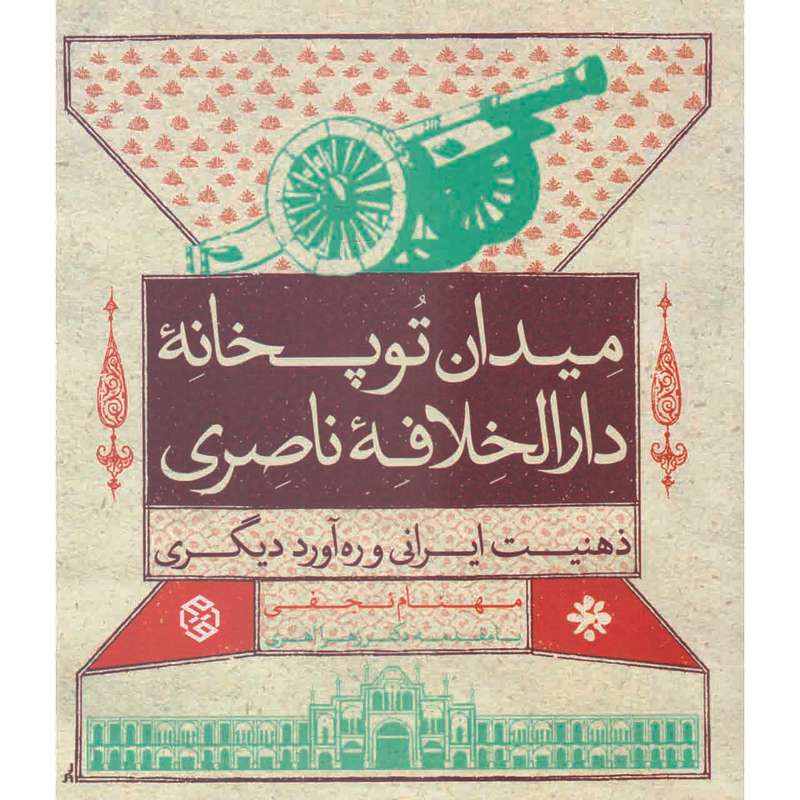 میدان تُوپخانهٔ
دارالخِلافهٔ ناصِری
ذهنیت ایرانی و ره‌آورد دیگری
مهنام نجفی
با مقدمه دکتر زهرا اهری